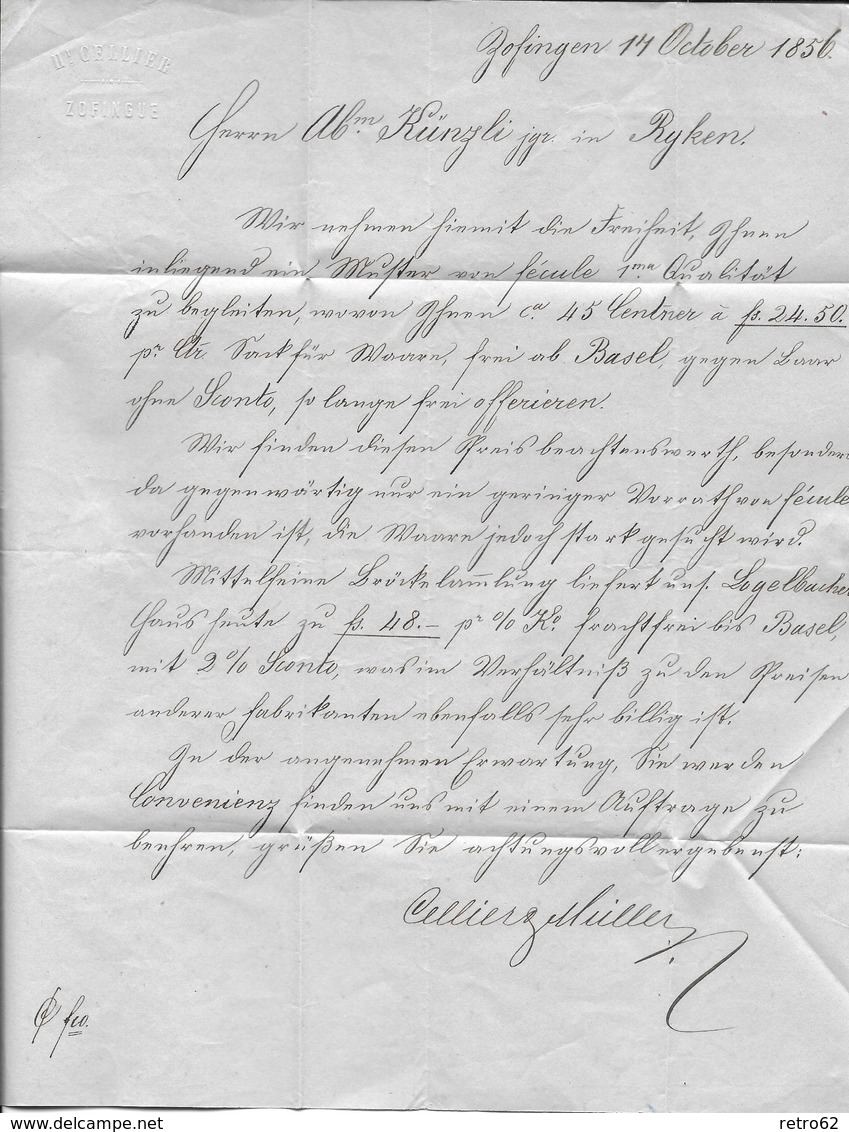 Hy CELLIER
ZOFINGUE
Zofingen 14 October 1856.
Herrn Abm Künzli jgr. in Ryken.
Wir nehmen hiemit die Freiheit, Ihnen
inliegend ein Muster von fécule 1ma Qualität
zu begleiten, wovon Ihnen ca. 45 Centner à fs. 24.50.
pr Ctr. Sack für Waare, frei ab Basel, gegen Baar
ohne Sconto, so lange frei offerieren.
Wir finden diesen Preis beachtenswerth, besonders
da gegenwärtig nur ein geringer Vorrath von fécule
vorhanden ist, die Waare jedoch stark gesucht wird.
Mittelfeine liefert uns. Logelbacher
Haus heute zu fs. 48.– pr % Ko. frachtfrei bis Basel,
mit 2 % Sconto, was im Verhältniß zu den Preisen
anderer Fabrikanten ebenfalls sehr billig ist.
In der angenehmen Erwartung, Sie werden
Convenienz finden uns mit einem Auftrage zu
beehren, grüßen Sie achtungsvoll ergebenst:
Cellier & Müller
fco.
delcampe.net
retro62